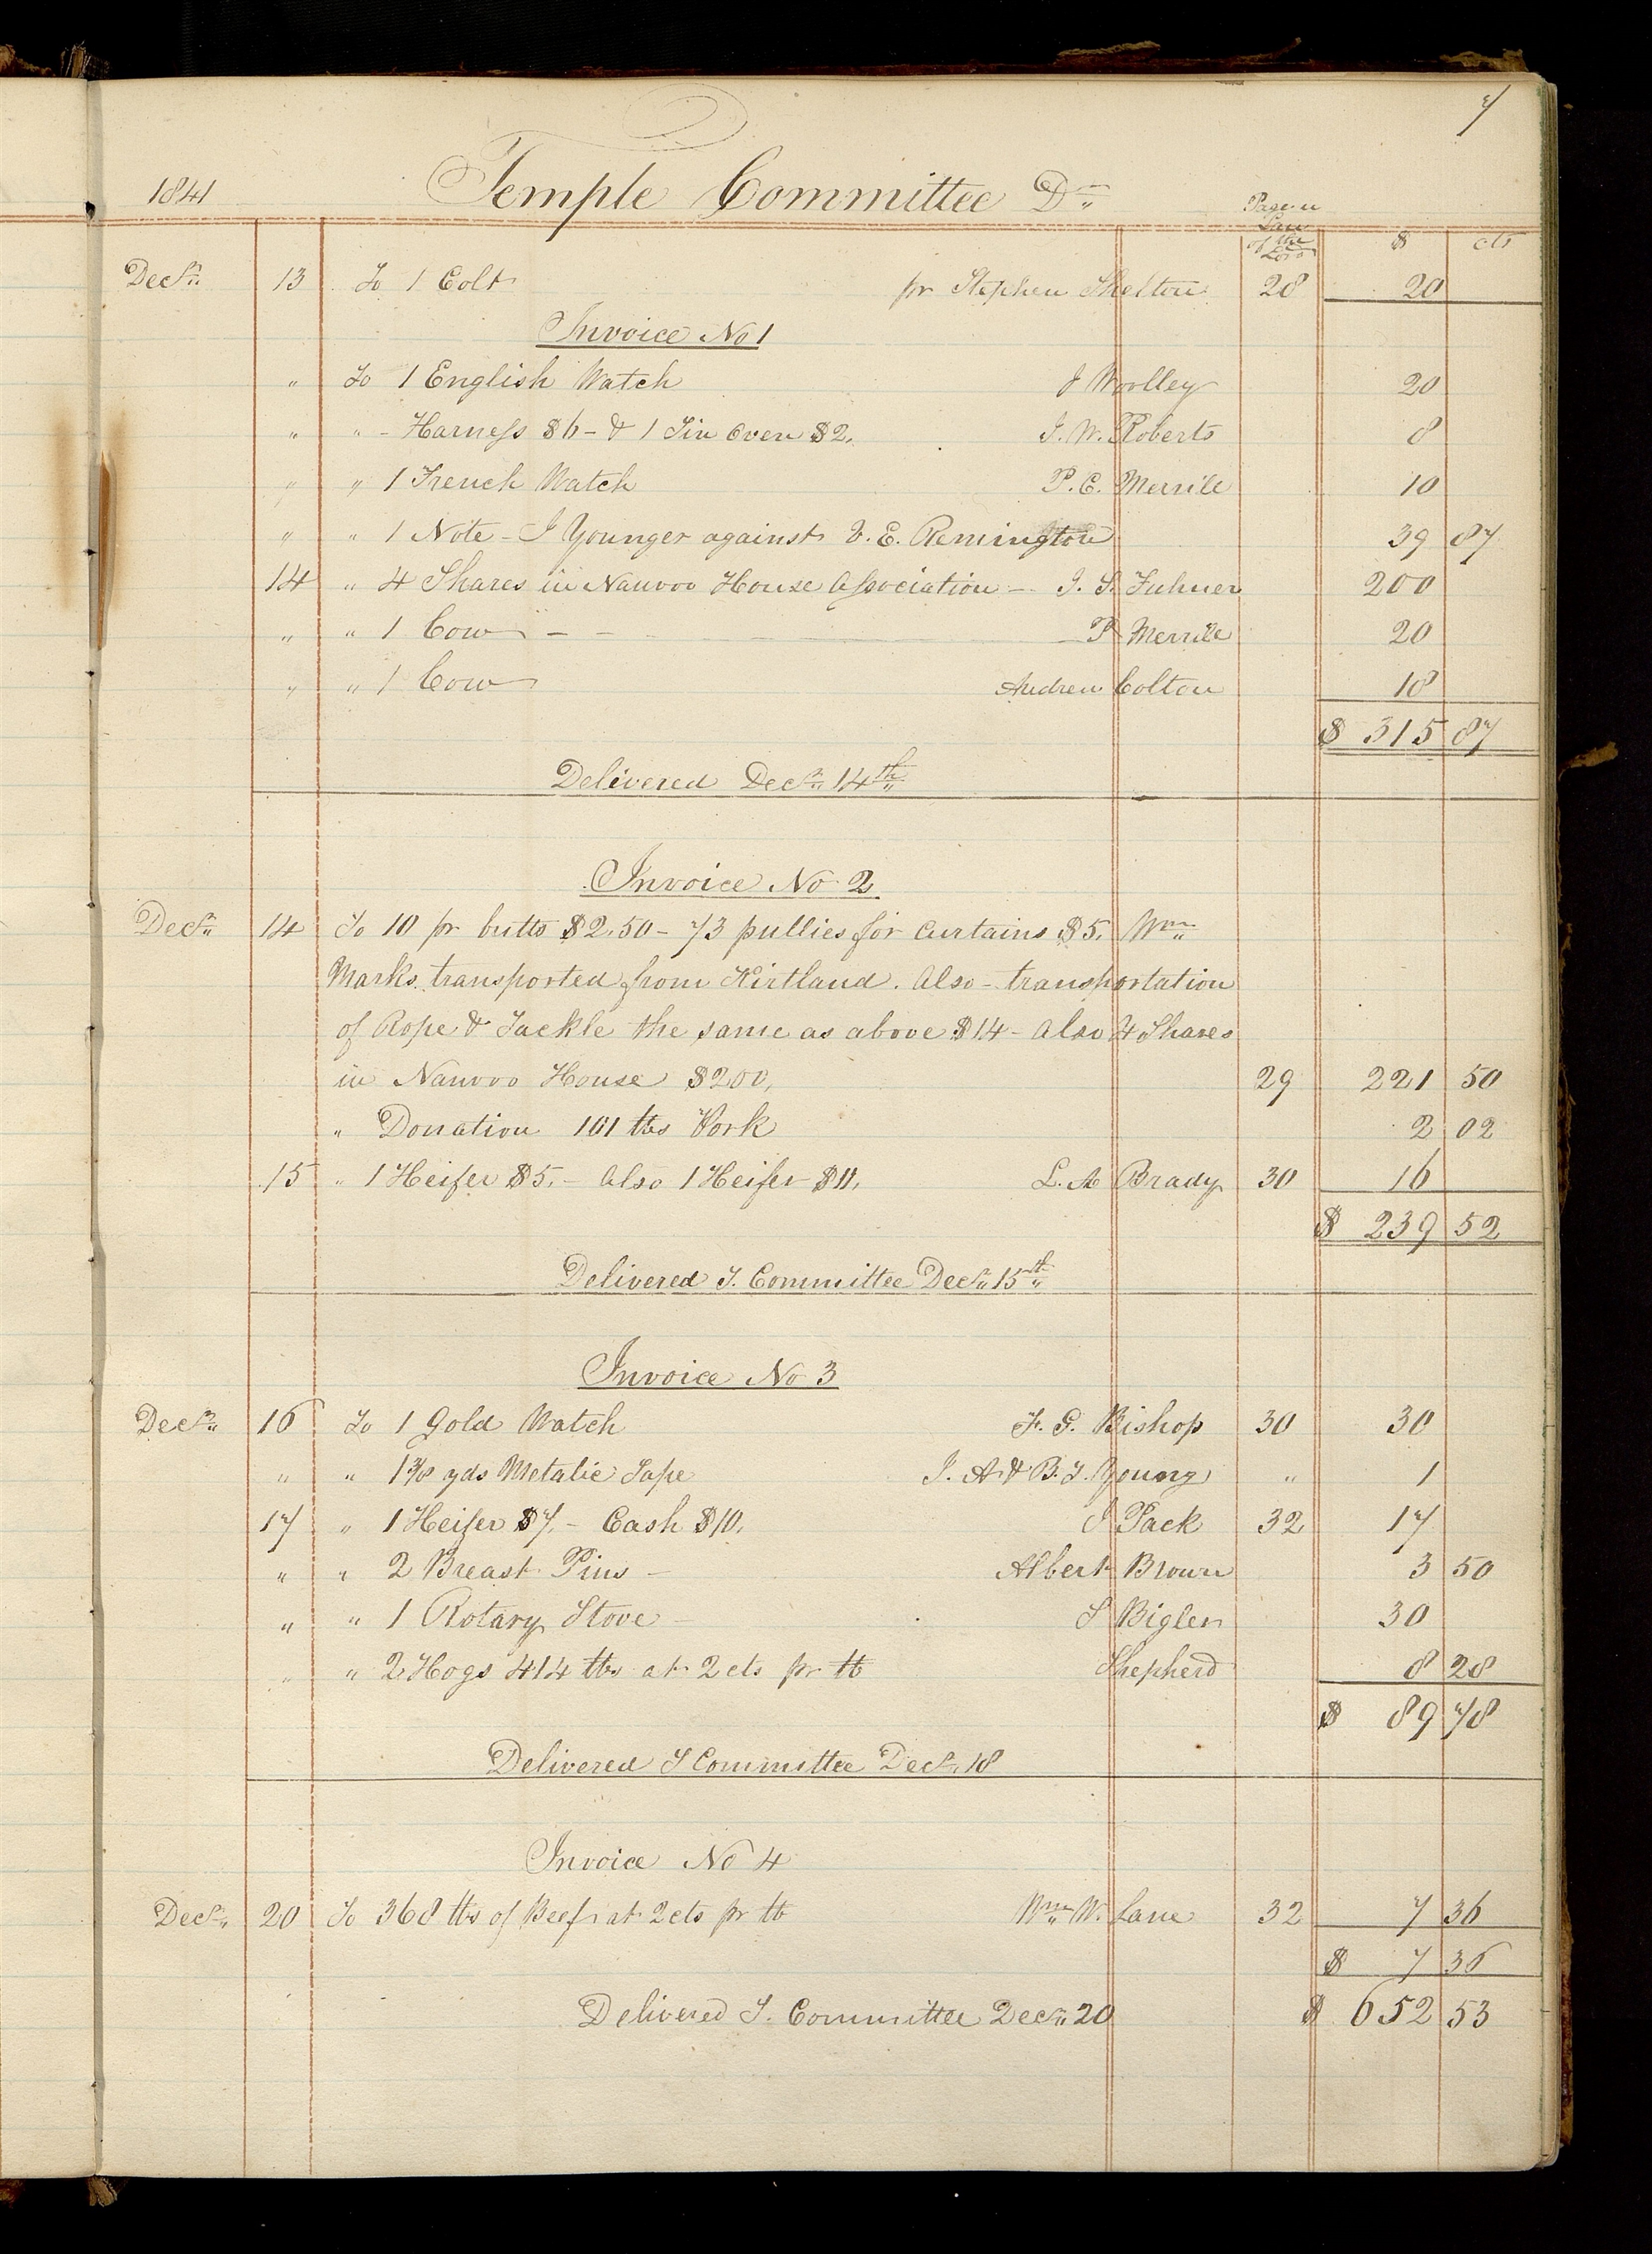 7
1841 Temple Committee Dr
Page in Law of the Lord $ cts
Decr. 13 To 1 Colt pr Stephen Shelton 28 20
Invoice No 1
" To 1 English Watch J Woolley 20
" " - Harness $6 - & 1 Tin Oven $2. J. W. Roberts 8
" " 1 French Watch P. C. Merrill 10
" " 1 Note - J Younger against J. E. Remington 39 87
14 " 4 Shares in Nauvoo House Association - J. S. Fulmer 200
" " 1 Cow - - P Merrill 20
" " 1 Cow Andrew Colton 18
$ 315 87
Delivered Decr. 14th
Invoice No 2
Decr. 14 To 10 pr butts $2.50 - 73 pullies for curtains $5. Wm
Marks transported from Kirtland. Also - transportation
of Rope & Tackle the same as above $14 - also 4 Shares
in Nauvoo House $200, 29 221 50
" Donation 101 lbs Pork 2 02
15 " 1 Heifer $5. - also 1 Heifer $11. L. A Brady 30 16
$ 239 52
Delivered T. Committee Decr. 15th
Invoice No 3
Decr. 16 To 1 Gold Watch F. G. Bishop 30 30
" " 1 3/8 yds Metalic Tape J. A & B. L. Young " 1
17 " 1 Heifer $7. - Cash $10. J Pack 32 17
" " 2 Breast Pins - Albert Brown 3 50
" " 1 Rotary Stove - S Bigler 30
" " 2 Hogs 414 lbs at 2 cts pr lb Shepherd 8 28
$ 89 78
Delivered T Committee Decr. 18
Invoice No 4
Decr. 20 To 368 lbs of Beef at 2 cts pr lb Wm W. Lane 32 7 36
$ 7 36
Delivered T. Committee Decr. 20 $ 652 53